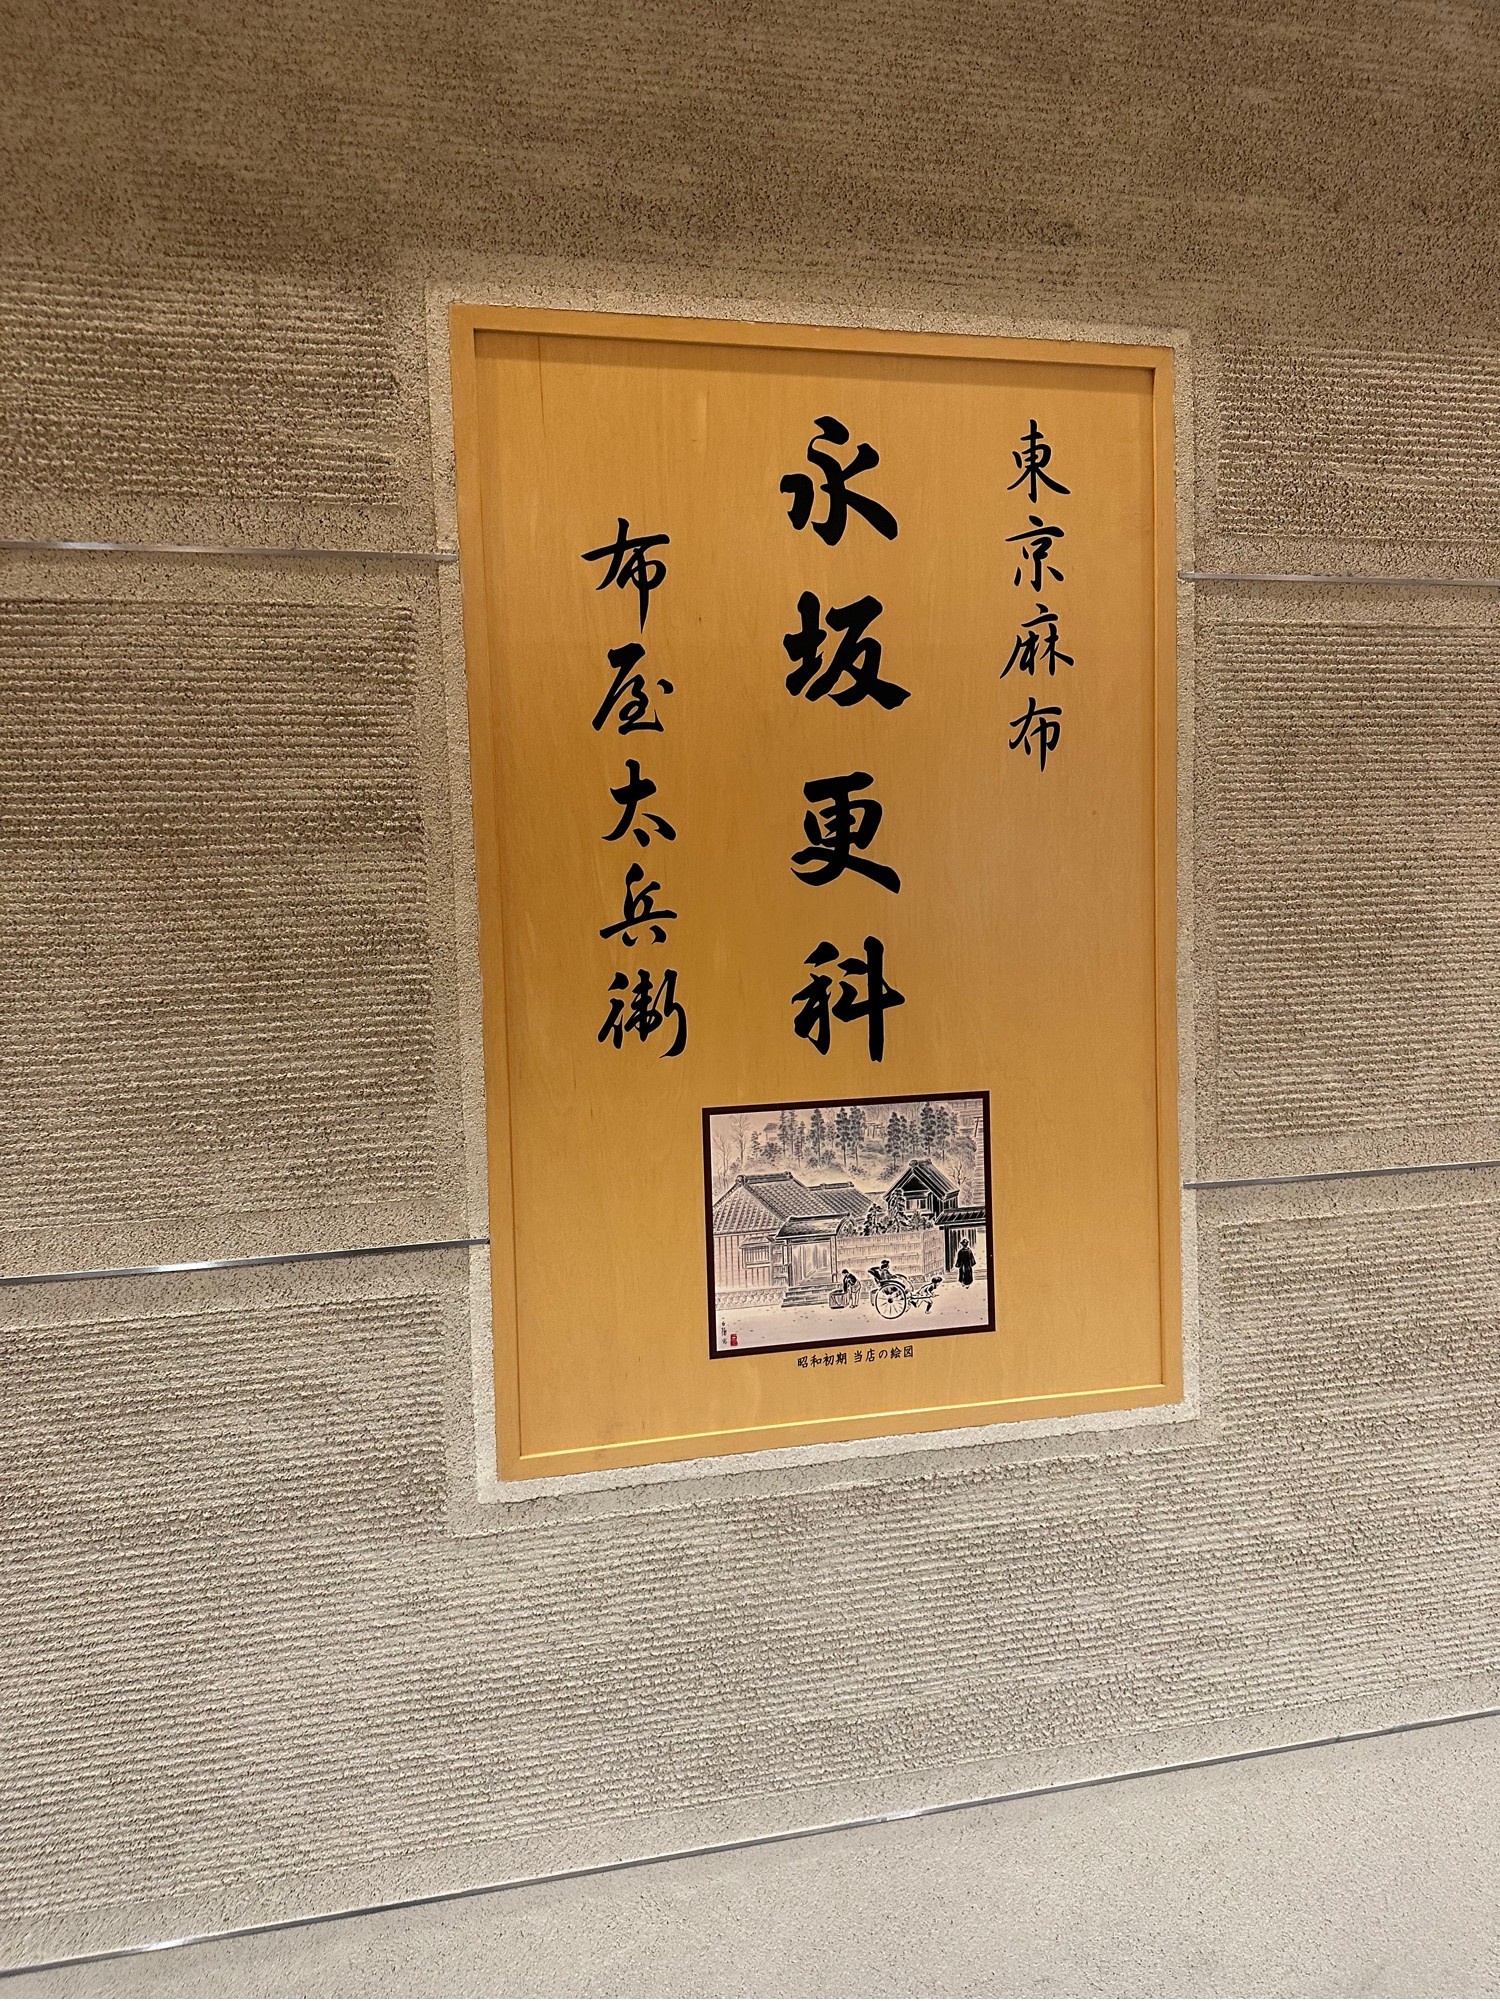 東京麻布
永坂更科
布屋太兵衛
昭和初期 当店の絵図